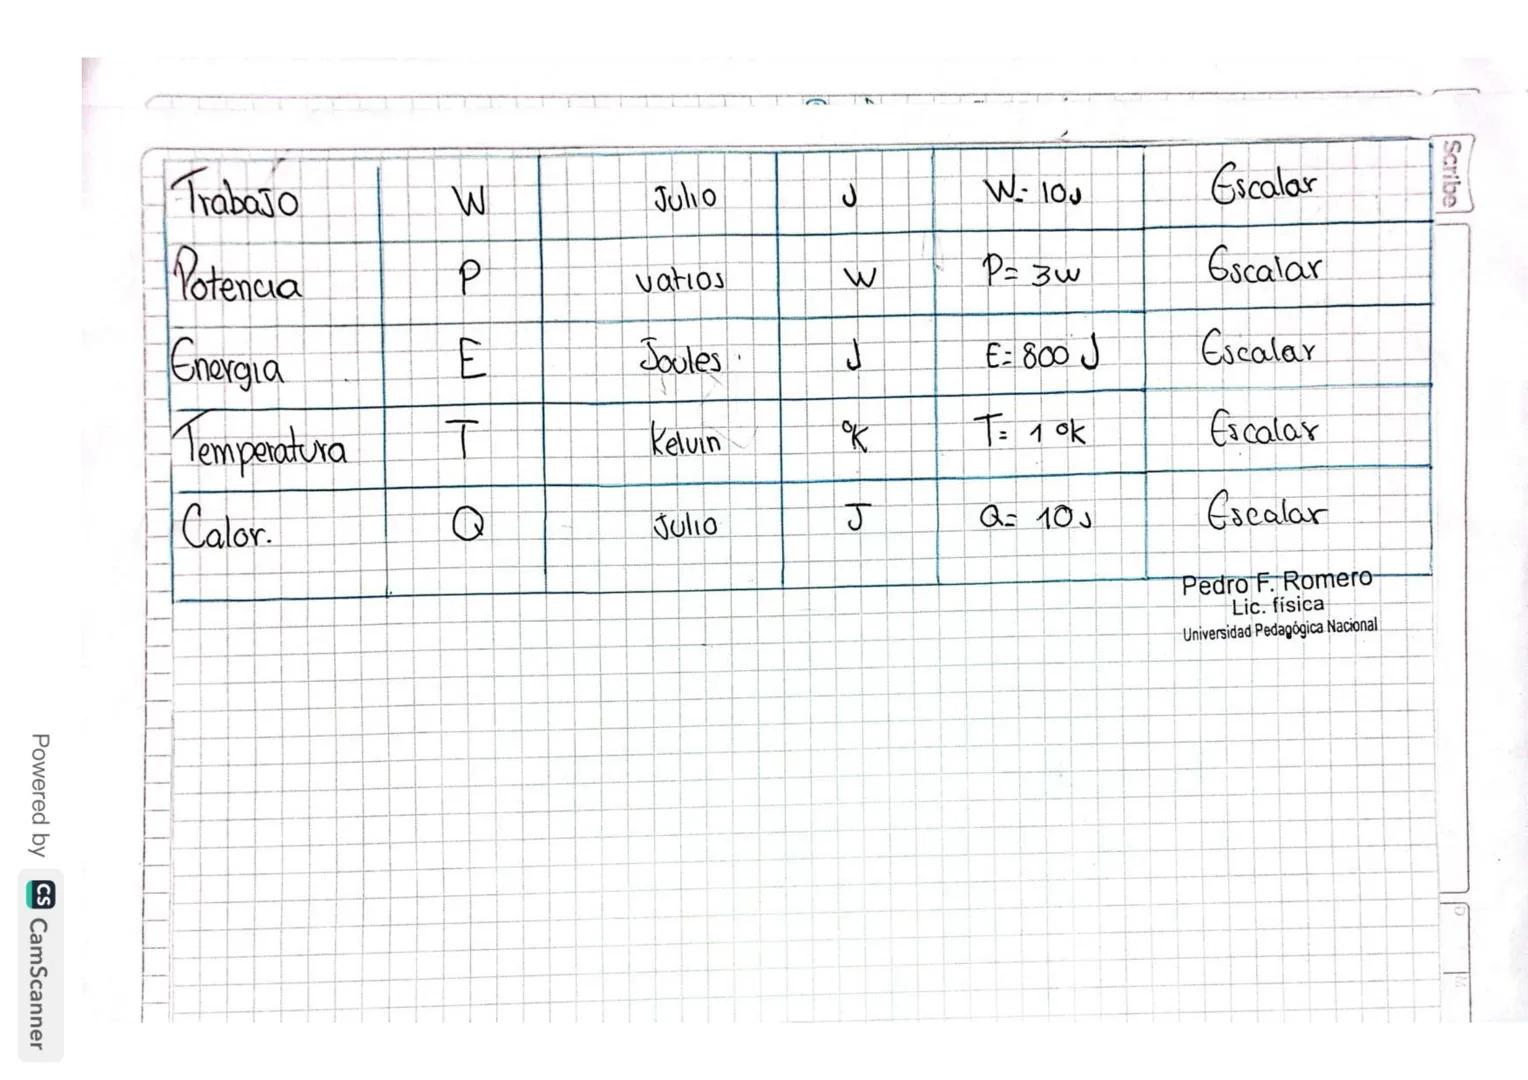 Trabajo W Julio J W= 10J Escalar
Potencia P vatios W P= 3w Escalar
Energia E Joules J E= 800 J Escalar
Temperatura T Kelvin °K T= 1 °k Escalar
Calor. Q Julio J Q= 10J Escalar
Pedro F. Romero
Lic. física
Universidad Pedagógica Nacional
Scribe
Powered by CS CamScanner